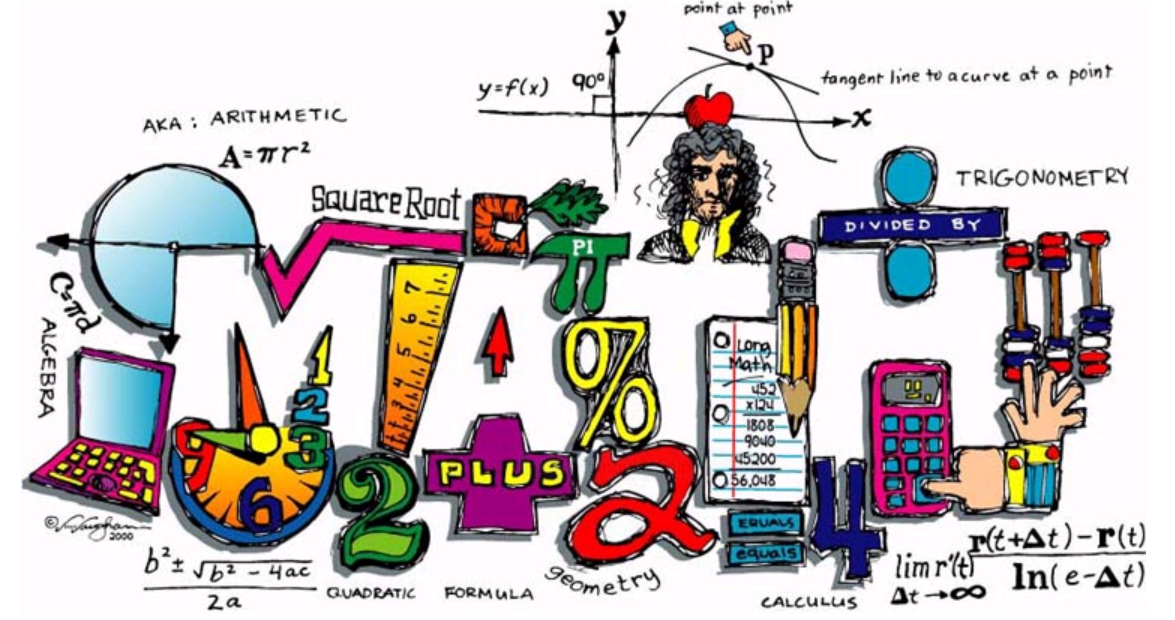 point at point
y
P
tangent line to a curve at a point
y=f(x)
90°
x
AKA: ARITHMETIC
A=πr²
Square Root
PI
DIVIDED BY
TRIGONOMETRY
C=πd
ALGEBRA
7
6
5
4
3
1
2
3
6
9
%
Long
Math
452
x124
1808
9040
45200
56,048
2
PLUS
2
EQUALS
equals
4
©
2000
b² ± √b² - 4ac
2a
QUADRATIC FORMULA
geometry
CALCULUS
lim r'(t)
Δt→∞
r(t+Δt)-r(t)
ln(e-Δt)